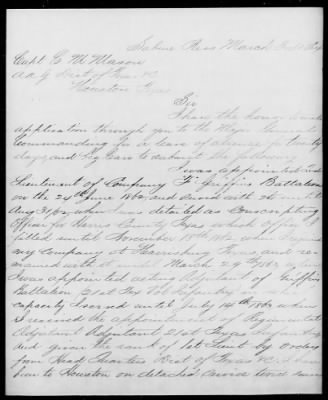 Sabine Pass March
Capt. E. M. Mason
A A G Dist of Texas &c
Houston Texas
Sir
I have the honor to make
application through you to the Major General
Commanding for a leave of absence for twenty
days, and beg leave to submit the following
I was appointed 2nd
Lieutenant of Company F Griffins Battalion
on the 24th June 1862 and served with it until
Aug 31/62 when I was detailed as Conscripting
Officer for Harris County Texas which office I
filled until November 1862 when I joined
my Company at Harrisburg Texas and re-
mained with it March 2
I was appointed acting Adjutant of Griffins
Battalion (21st Tex Vol Infantry) in
capacity I served until July 14th 1863 when
I received the appointment of Regimental
Adjutant 21st Texas Infantry
and given the rank of 1st Lieut by orders
from Head Quarters Dist of Texas &c. I have
been to Houston on detached service